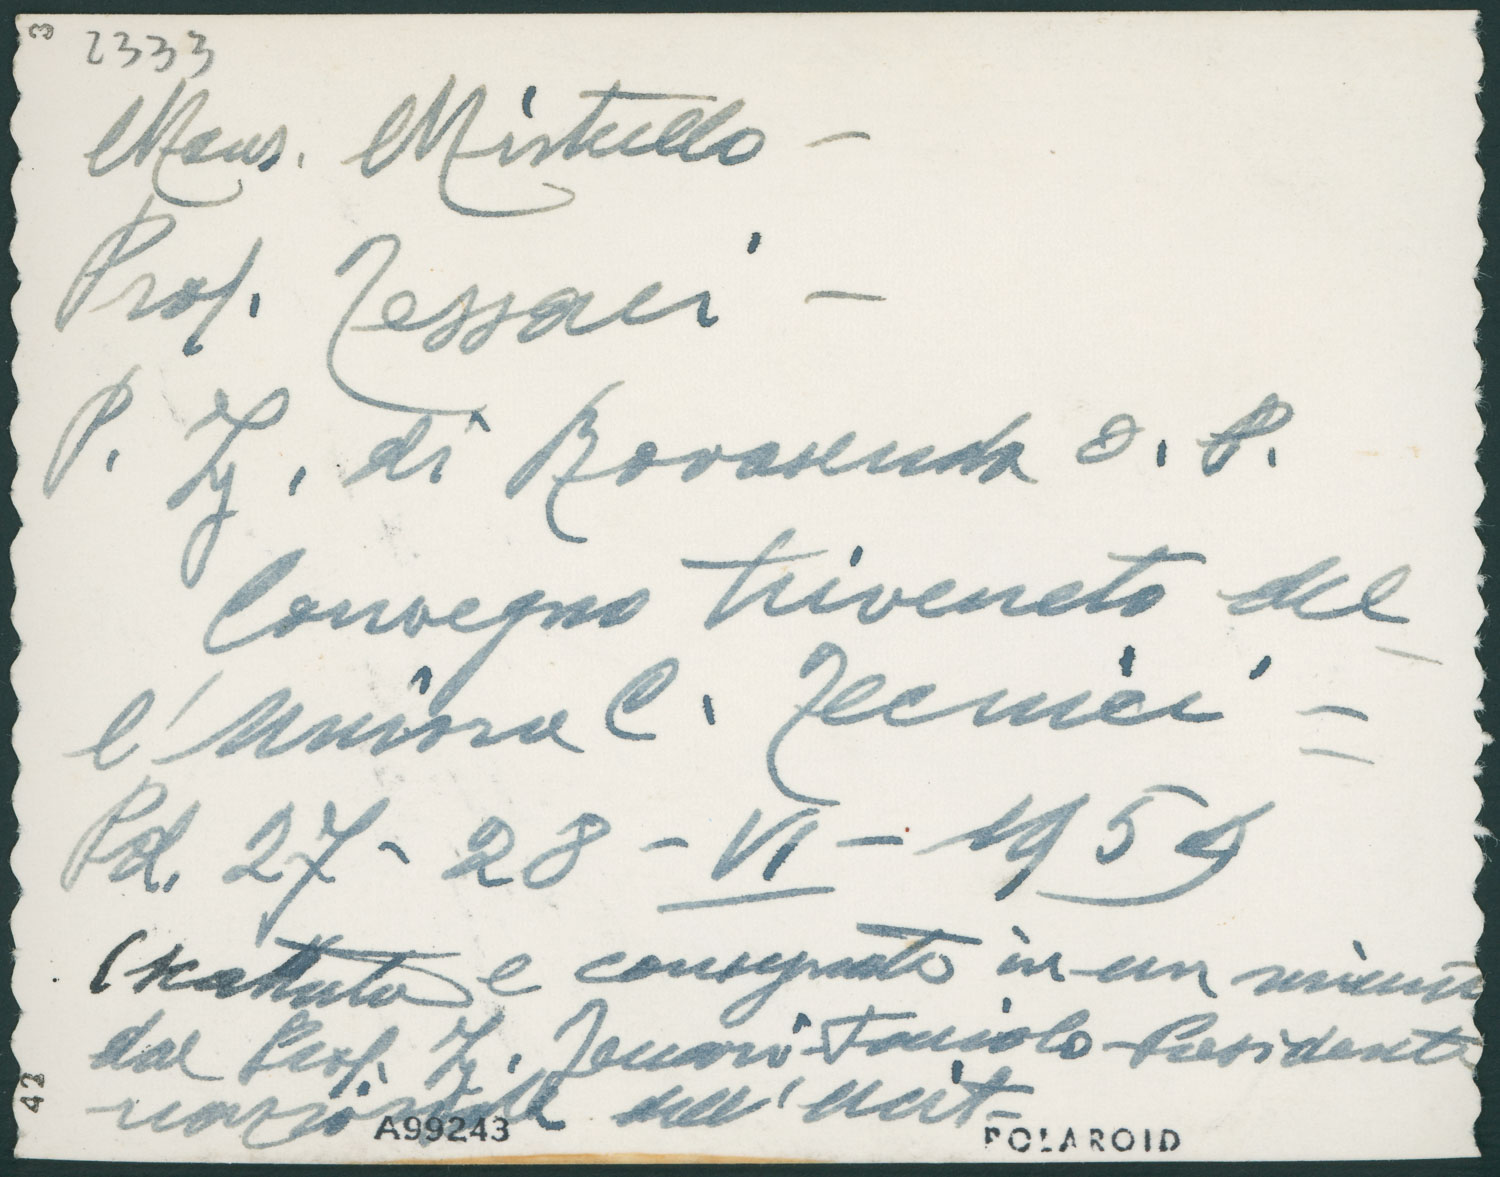 3
2333
Mons. Mistrello -
Prof. Tessari -
P. Ig. di Rovasenda O. P.
Convegno triveneto del-
l'Unione C. Tecnici =
Pd. 27 - 28 - VI - 1954
(scattata e consegnata in un minuto
dal Prof. Ig. Toniolo - Presidente
nazionale dell' Ucit -
42
A99243
POLAROID